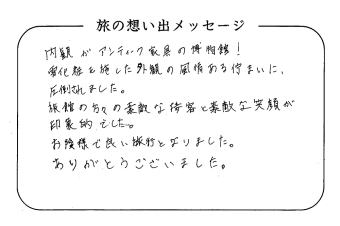 旅の想い出メッセージ
内観がアンティク家具の博物館！
雪化粧を施した外観の風情ある佇まいに、
圧倒されました。
旅館の方々の素敵な接客と素敵な笑顔が
印象的でした。
お陰様で良い旅行となりました。
ありがとうございました。